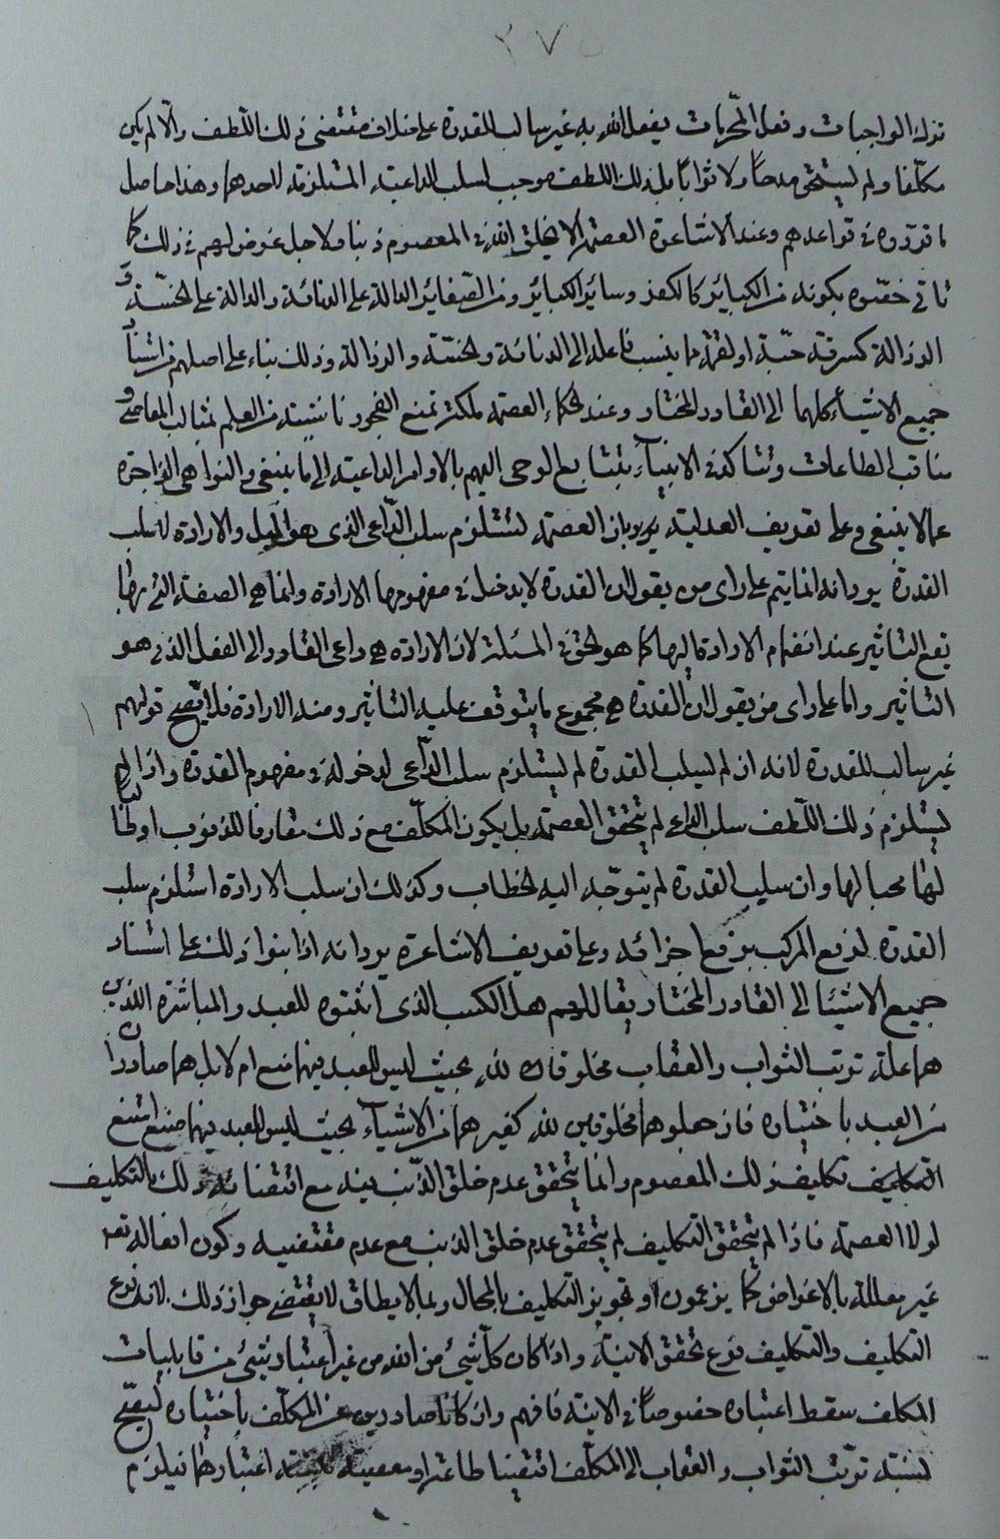 ٣٧
ترك الواجبات وفعل المحرمات يفعل الله به غير سالب للقدرة على خلاف مقتضى ذلك اللطف والا لم يكن
مكلفا ولم يستحق مدحا ولا ثوابا بل ذلك اللطف موجب لسلب الداعية المستلزمة لاحدهما وهذا حاصل
ما قرروه في قواعدهم وعند الاشاعرة العصمة الا يخلق الله في المعصوم ذنبا ولاجل غرض لهم في ذلك كما
ياتي خصوه بكونه من الكبائر كالكفر وسائر الكبائر ومن الصغائر الدالة على الدنائة والدالة على الخسة و
الرذالة كسرقة حبة او لقمة مما ينسب فاعله الى الدنائة والخسة والرذالة وذلك بناء على اصلهم من استناد
جميع الاشياء كلها الى القادر المختار وعند الحكماء العصمة ملكة تمنع الفجور ناشئة من العلم بمثالب المعاصي و
مناقب الطاعات وتتاكد في الانبياء بتتابع الوحي اليهم بالاوامر الداعية الى ما ينبغي والنواهي الزاجرة
عما لا ينبغي وعلى تعريف العدلية يرد بان العصمة تستلزم سلب الداعي الذي هو الميل والارادة لا سلب
القدرة يرد انه انما يتم على راى من يقول ان القدرة لا يدخل في مفهومها الارادة وانما هي الصفة التي بها
يقع التاثير عند انضمام الارادة اليها كما هو الحق في المسئلة لان الارادة هي داعي القادر الى الفعل الذي هو
التاثير واما على راى من يقول ان القدرة هي مجموع ما يتوقف عليه التاثير ومنه الارادة فلا يصح قولهم
غير سالب للقدرة لانه ان لم يسلب القدرة لم يستلزم سلب الداعي لدخوله في مفهوم القدرة واذا لم
يستلزم ذلك اللطف سلب الداعي لم يتحقق العصمة بل يكون المكلف مع ذلك مقارفا للذنوب او
لها محبا لها وان سلب القدرة لم يتوجه اليه الخطاب وكذلك ان سلب الارادة استلزم سلب
القدرة لرفع المركب برفع اجزائه وعلى تعريف الاشاعرة يرد انه اذا بنوا ذلك على استناد
جميع الاشياء الى القادر المختار يقال لهم هل الكسب الذي اثبتوه للعبد والمباشرة اللذين
هما علة ترتب الثواب والعقاب مخلوقان لله بحيث ليس للعبد فيهما صنع ام لا بل هما صادران
من العبد باختياره فان جعلوهما مخلوقين لله كغيرهما من الاشياء بحيث ليس للعبد فيهما صنع امتنع
التكليف تكليف ذلك المعصوم وانما يتحقق عدم خلق الذنب فيه مع اقتضائه ذلك بالتكليف
لولا العصمة فاذا لم يتحقق التكليف لم يتحقق عدم خلق الذنب مع عدم مقتضيه وكون افعاله تعالى
غير معللة بالاغراض كما يزعمون او تجويز التكليف بالمحال وبما لا يطاق لا يقتضي جواز ذلك لانه فرع
التكليف والتكليف فرع تحقق الانية واذا كان كل شيء من الله من غير اعتبار شيء من قابليات
المكلف سقط اعتباره خصوصا في الانية فافهم وان كانا صادرين عن المكلف باختياره ليصح
نسبة ترتب الثواب والعقاب الى المكلف اقتضيا طاعة او معصية اعتبارهما فيلزم